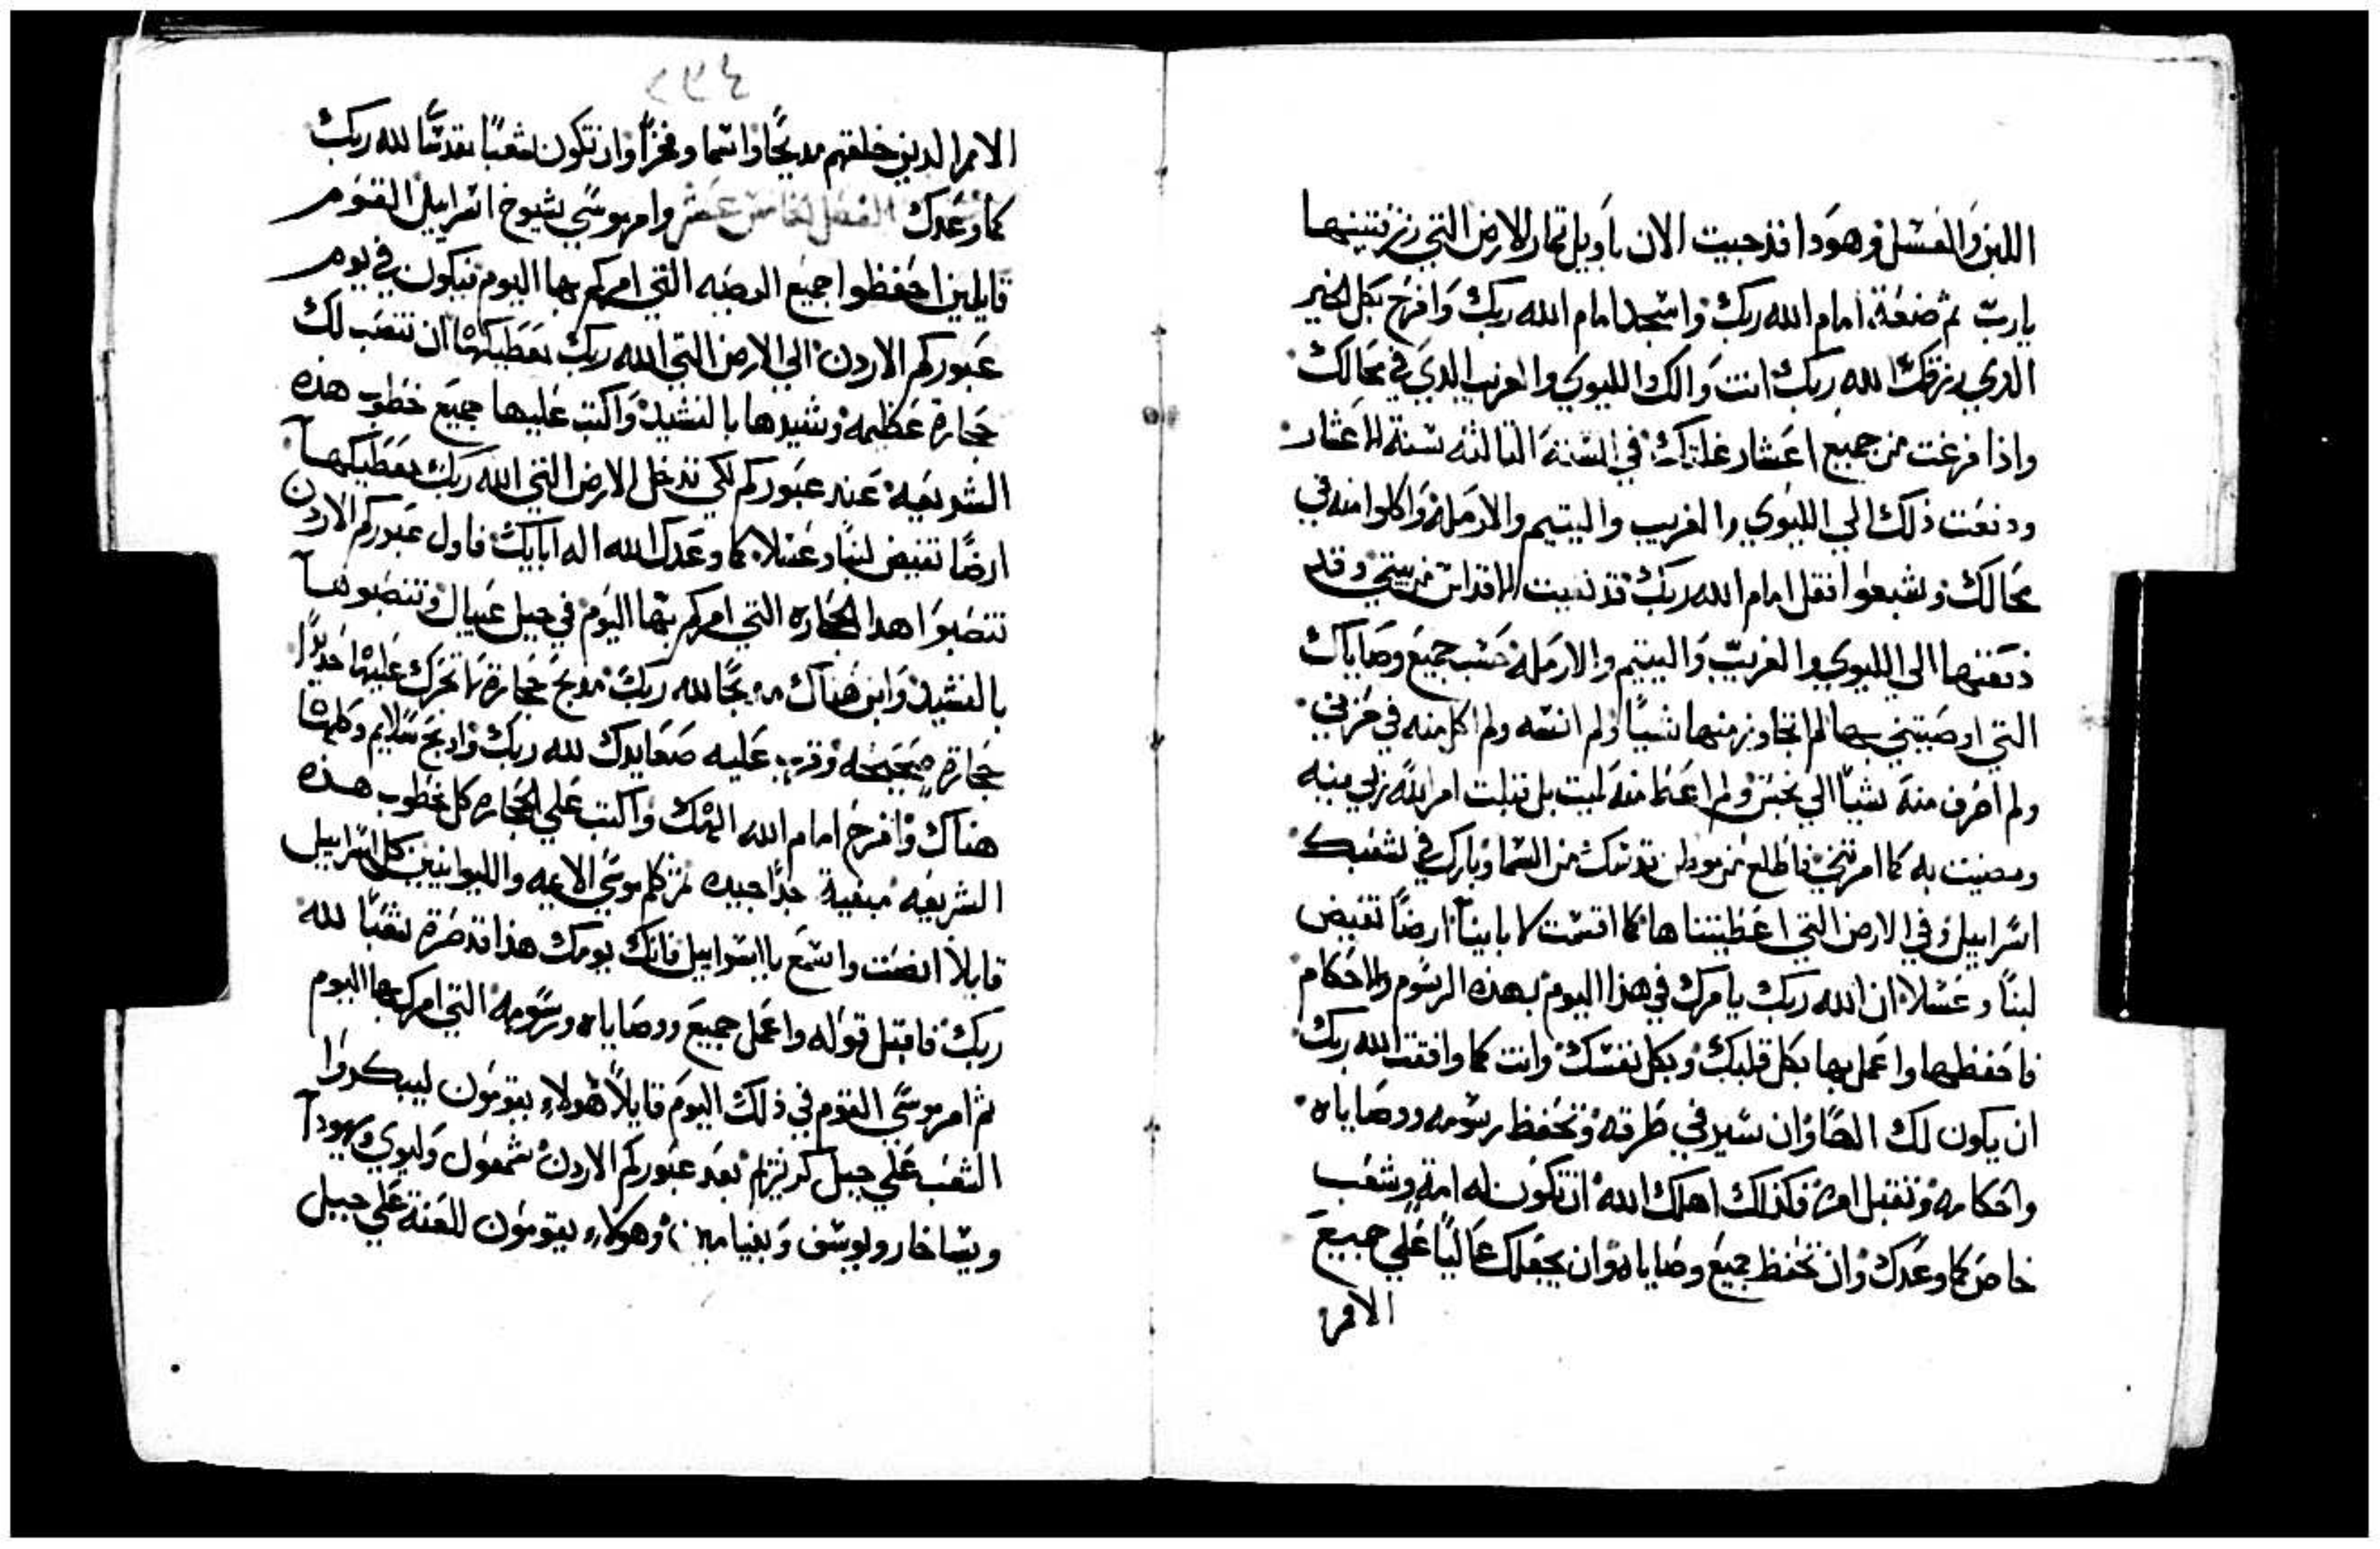 اللبن والعسل وهودا قد جيت الان باويل تمار الارض التي رزقتنيها
يارب ثم ضعه امام الله ربك واسجد امام الله ربك وافرح بكل الخير
الدي رزقك الله ربك انت والك والليوي والغريب الدي في محالك
واذا فرغت من جميع اعشار غلتك في السنة التالته سنة الاعشار
ودفعت ذلك الي الليوي والغريب واليتيم والارملة واكلوا منه في
محالك وشبعوا فقل امام الله ربك قد نفيت الاقداس من بيتي وقد
دفعتها الي الليوي والغريب واليتيم والارملة حسب جميع وصاياك
التي اوصيتني بها لم اتجاوز منها شيا ولم انسه ولم اكل منه في حزني
ولم اصرف منه شيا الي نجس ولم اعط منه لميت بل قبلت امر الله ربي منه
وصنيت به كما امرتني فاطلع من موطن قدسك من السما وبارك في شعبك
اسراييل وفي الارض التي اعطيتناها كما اقسمت لابابينا ارضا تفيض
لبنا وعسلا ان الله ربك يامرك في هذا اليوم بهذه الرسوم والاحكام
فاحفظها واعمل بها بكل قلبك وبكل نفسك وانت كما وافقت الله ربك
ان يكون لك الها وان تسير في طرقه وتحفظ رسومه ووصاياه
واحكامه وتقبل امره فكذلك اهلك الله ان تكون له امة وشعب
خاص كما وعدك وان تحفظ جميع وصاياه وان يجعلك عاليا علي جميع
الامر
الامر الدين خلقهم مديحا واسما وفخرا وان تكون شعبا مقدسا لله ربك
كما وعدك الفصل الخامس عشر وامر موسي شيوخ اسراييل القوم
قايلين احفظوا جميع الوصيه التي امركم بها اليوم فيكون في يوم
عبوركم الاردن الي الارض التي الله ربك يعطيكها ان تنصب لك
حجارة عظيمه وشيدها بالشيد واكتب عليها جميع خطوب هذه
الشريعه عند عبوركم لكي تدخل الارض التي الله ربك يعطيكها
ارضا تفيض لبنا وعسلا كما وعدك الله اله ابايك فاول عبوركم الاردن
تنصبوا هدا الحجاره التي امركم بها اليوم في جبل عيبال وتنصبوها
بالشيد وابن هناك مدبحا لله ربك مدبح حجارة لا تحرك عليها حديدا
حجارة صحيحه وقرب عليه صعايدك لله ربك وادبح سلايم وكلها
هناك وافرح امام الله الهك واكتب علي الحجاره كل خطوب هذه
الشريعه مبقية جدا جيده ثم كلم موسي الايمه والليوانيين كل اسراييل
قايلا انصت واسمع يا اسراييل فانك يومك هذا قد صرة شعبا لله
ربك فاقبل قوله واعمل جميع ووصاياه ورسومه التي امرك بها اليوم
ثم امر موسي القوم في ذلك اليوم قايلا هولاء يقومون ليبكروا
الشعب علي جبل كرنزيم بعد عبوركم الاردن شمعول وليوي ويهودا
ويساخار ويوسف وبنيامين وهولاء يقومون للعنة علي جبل